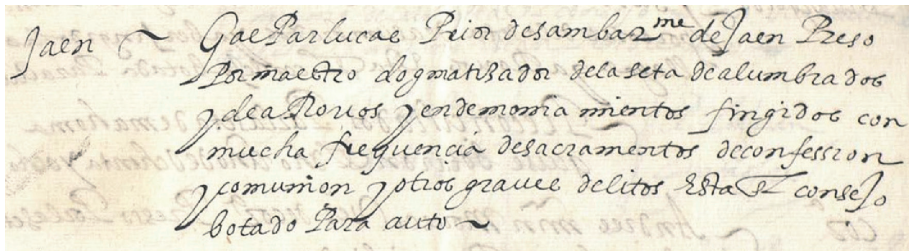 Jaen ~ Gaspar lucas Prior de san bar^me de Jaen Preso
Por maestro dogmatizador de la seta de alumbrados
y de aRovos y endemonia mientos fingidos con
mucha frequencia de sacramentos de confession
y comunion y otros graves delitos esta en consejo
botado Para auto ~